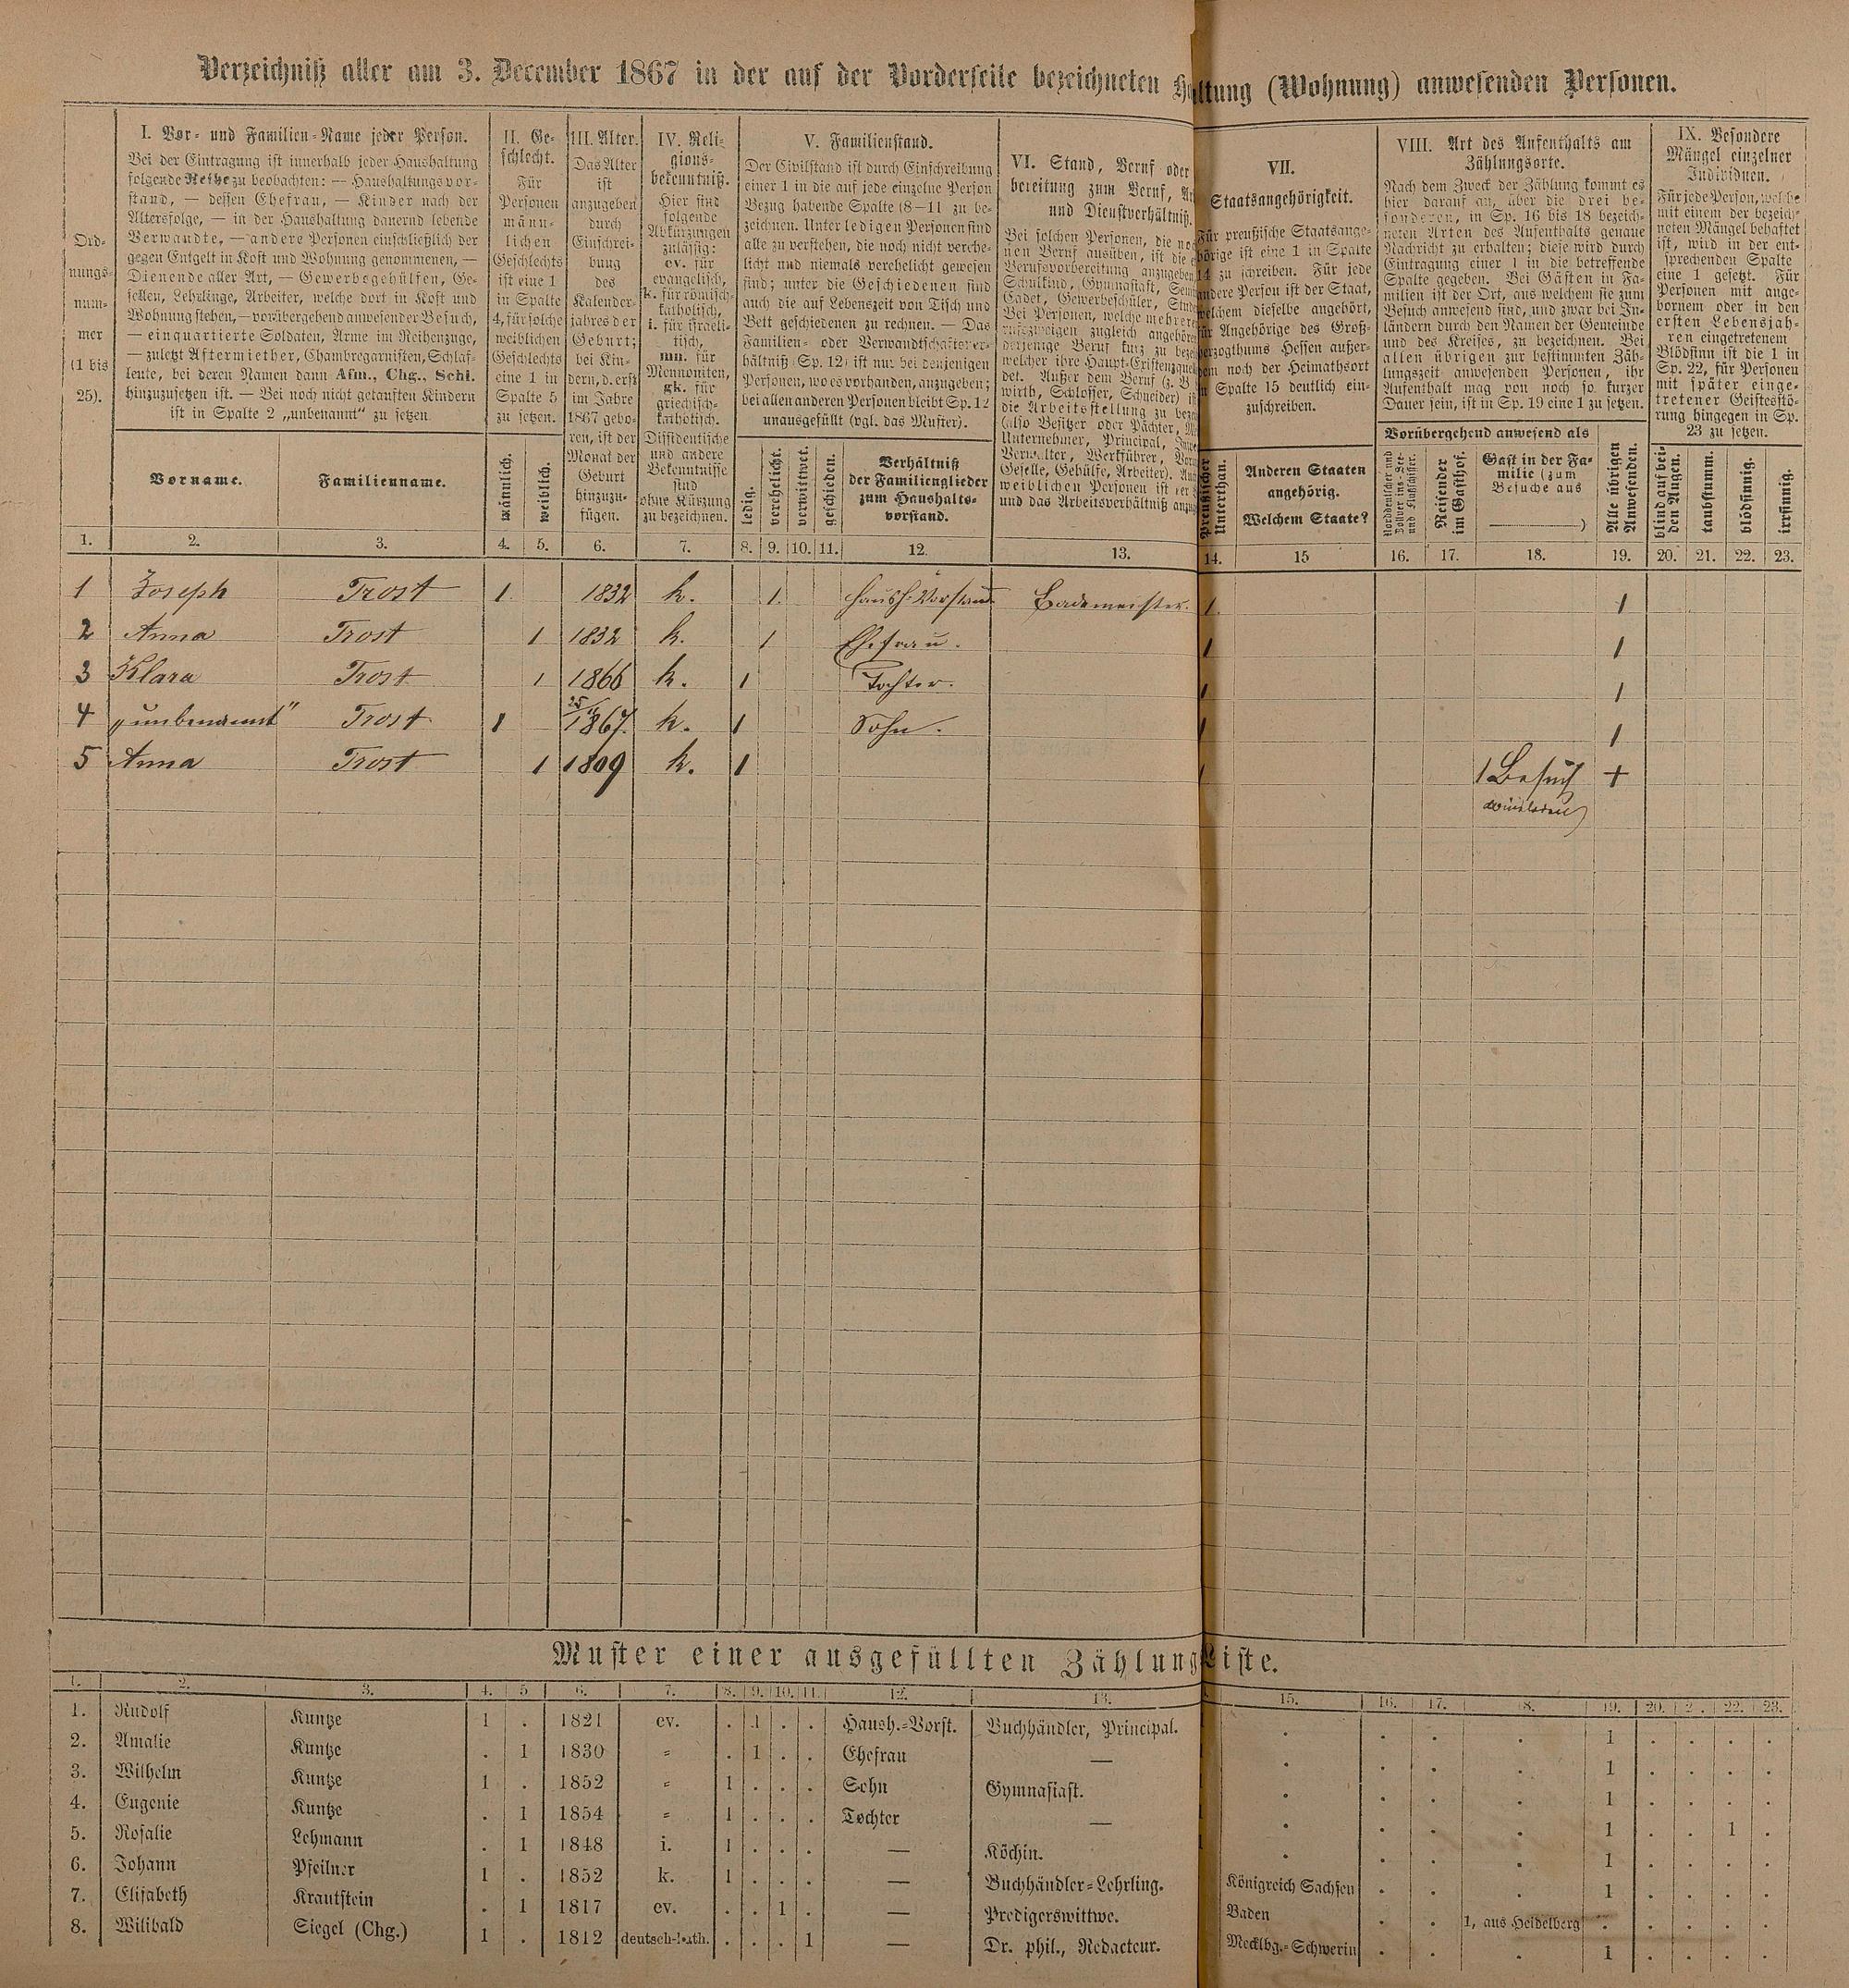 Verzeichniß aller am 3. December 1867 in der auf der Vorderseite bezeichneten Haltung (Wohnung) anwesenden Personen.
Ord-
nungs-
num-
mer
(1 bis
25).
I. Vor- und Familien-Name jeder Person.
Bei der Eintragung ist innerhalb jeder Haushaltung
folgende Reihe zu beobachten: — Haushaltungsvor-
stand, — dessen Ehefrau, — Kinder nach der
Altersfolge, — in der Haushaltung dauernd lebende
Verwandte, — andere Personen einschließlich der
gegen Entgelt in Kost und Wohnung genommenen, —
Dienende aller Art, — Gewerbegehülfen, Ge-
sellen, Lehrlinge, Arbeiter, welche dort in Kost und
Wohnung stehen, — vorübergehend anwesender Besuch,
— einquartierte Soldaten, Arme im Reihenzuge,
— zuletzt Aftermiether, Chambregarnisten, Schlaf-
leute, bei deren Namen dann Afm., Chg., Schl.
hinzuzusetzen ist. — Bei noch nicht getauften Kindern
ist in Spalte 2 „unbenannt“ zu setzen.
Vorname.
Familienname.
II. Ge-
schlecht.
Für
Personen
männ-
lichen
Geschlechts
ist eine 1
in Spalte
4, für solche
weiblichen
Geschlechts
eine 1 in
Spalte 5
zu setzen.
männlich.
weiblich.
III. Alter.
Das Alter
ist
anzugeben
durch
Einschrei-
bung
des
Kalender-
jahres der
Geburt;
bei Kin-
dern, d. erst
im Jahre
1867 gebo-
ren, ist der
Monat der
Geburt
hinzuzu-
fügen.
IV. Reli-
gions-
bekenntniß.
Hier sind
folgende
Abkürzungen
zulässig:
ev. für
evangelisch,
k. für römisch-
katholisch,
i. für israeli-
tisch,
mn. für
Mennoniten,
gk. für
griechisch-
katholisch.
Dissidentische
und andere
Bekenntnisse
sind
ohne Kürzung
zu bezeichnen.
V. Familienstand.
Der Civilstand ist durch Einschreibung
einer 1 in die auf jede einzelne Person
Bezug habende Spalte (8—11 zu be-
zeichnen. Unter ledigen Personen sind
alle zu verstehen, die noch nicht verehe-
licht und niemals verehelicht gewesen
sind; unter die Geschiedenen sind
auch die auf Lebenszeit von Tisch und
Bett geschiedenen zu rechnen. — Das
Familien- oder Verwandtschaftsver-
hältniß (Sp. 12) ist nur bei denjenigen
Personen, wo es vorhanden, anzugeben;
bei allen anderen Personen bleibt Sp. 12
unausgefüllt (vgl. das Muster).
ledig.
verehelicht.
verwittwet.
geschieden.
Verhältniß
der Familienglieder
zum Haushalts-
vorstand.
VI. Stand, Beruf oder
bereitung zum Beruf,
und Dienstverhältniß.
Bei solchen Personen, die
nen Beruf ausüben, ist die
Berufsvorbereitung anzugeben
Schulkind, Gymnasiast,
Cadet, Gewerbeschüler,
Bei Personen, welche mehreren
rufszweigen zugleich angehören
derjenige Beruf kurz zu
welcher ihre Haupt-Existenzquelle
det. Außer dem Beruf (z. B.
wirth, Schlosser, Schneider)
die Arbeitsstellung zu
(also Besitzer oder Pächter,
Unternehmer, Principal,
Verwalter, Werkführer,
Geselle, Gehülfe, Arbeiter).
weiblichen Personen ist
und das Arbeitsverhältniß
VII.
Staatsangehörigkeit.
Für preußische Staatsange-
hörige ist eine 1 in Spalte
14 zu schreiben. Für jede
andere Person ist der Staat,
welchem dieselbe angehört,
für Angehörige des Groß-
herzogthums Hessen außer-
dem noch der Heimathsort
in Spalte 15 deutlich ein-
zuschreiben.
Preußischer
Unterthan.
Anderen Staaten
angehörig.
Welchem Staate?
VIII. Art des Aufenthalts am
Zählungsorte.
Nach dem Zweck der Zählung kommt es
hier darauf an, über die drei be-
sonderen, in Sp. 16 bis 18 bezeich-
neten Arten des Aufenthalts genaue
Nachricht zu erhalten; diese wird durch
Eintragung einer 1 in die betreffende
Spalte gegeben. Bei Gästen in Fa-
milien ist der Ort, aus welchem sie zum
Besuch anwesend sind, und zwar bei In-
ländern durch den Namen der Gemeinde
und des Kreises, zu bezeichnen. Bei
allen übrigen zur bestimmten Zäh-
lungszeit anwesenden Personen, ihr
Aufenthalt mag von noch so kurzer
Dauer sein, ist in Sp. 19 eine 1 zu setzen.
Vorübergehend anwesend als
Norddeutscher und
Zollver.ins-See-
und Flußschiffer.
Reisender
im Gasthof.
Gast in der Fa-
milie (zum
Besuche aus
)
Alle übrigen
Anwesenden.
IX. Besondere
Mängel einzelner
Individuen.
Für jede Person, welche
mit einem der bezeich-
neten Mängel behaftet
ist, wird in der ent-
sprechenden Spalte
eine 1 gesetzt. Für
Personen mit ange-
bornem oder in den
ersten Lebensjah-
ren eingetretenem
Blödsinn ist die 1 in
Sp. 22, für Personen
mit später einge-
tretener Geistesstö-
rung hingegen in Sp.
23 zu setzen.
blind auf bei-
den Augen.
taubstumm.
blödsinnig.
irrsinnig.
1. 2. 3. 4. 5. 6. 7. 8. 9. 10. 11. 12. 13. 14. 15 16. 17. 18. 19. 20. 21. 22. 23.
1 Joseph Trost 1. 1832 k. 1. Haush.-Vorstand Bademeister. 1. 1
2 Anna Trost 1 1832 k. 1 Ehefrau. 1 1
3 Klara Trost 1 1866 k. 1 Tochter. 1 1
4 „unbenannt“ Trost 1 1867. k. 1 Sohn. 1 1
5 Anna Trost 1 1809 k. 1 1 1 Besuch +
Muster einer ausgefüllten Zählungsliste.
1. 2. 3. 4. 5 6. 7. 8. 9. 10. 11. 12. 13. 15. 16. 17. 18. 19. 20. 2. 22. 23.
1. Rudolf Kuntze 1 . 1821 ev. . 1 . . Haush.-Vorst. Buchhändler, Principal. . . . . 1 . . . .
2. Amalie Kuntze . 1 1830 = . 1 . . Ehefrau — . . . . 1 . . . .
3. Wilhelm Kuntze 1 . 1852 = 1 . . . Sohn Gymnasiast. . . . . 1 . . . .
4. Eugenie Kuntze . 1 1854 = 1 . . . Tochter — . . . . 1 . . 1 .
5. Rosalie Lehmann . 1 1848 i. 1 . . . — Köchin. . . . . 1 . . . .
6. Johann Pfeilner 1 . 1852 k. 1 . . . — Buchhändler-Lehrling. Königreich Sachsen . . . 1 . . . .
7. Elisabeth Krautstein . 1 1817 ev. . . 1 . — Predigerswittwe. Baden . . 1, aus Heidelberg . . . . .
8. Wilibald Siegel (Chg.) 1 . 1812 deutsch-kath. . . . 1 — Dr. phil., Redacteur. Mecklbg.-Schwerin . . . 1 . . . .